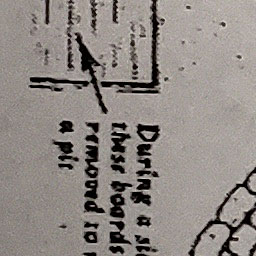 During a sie
these boards
removed to r
a pit